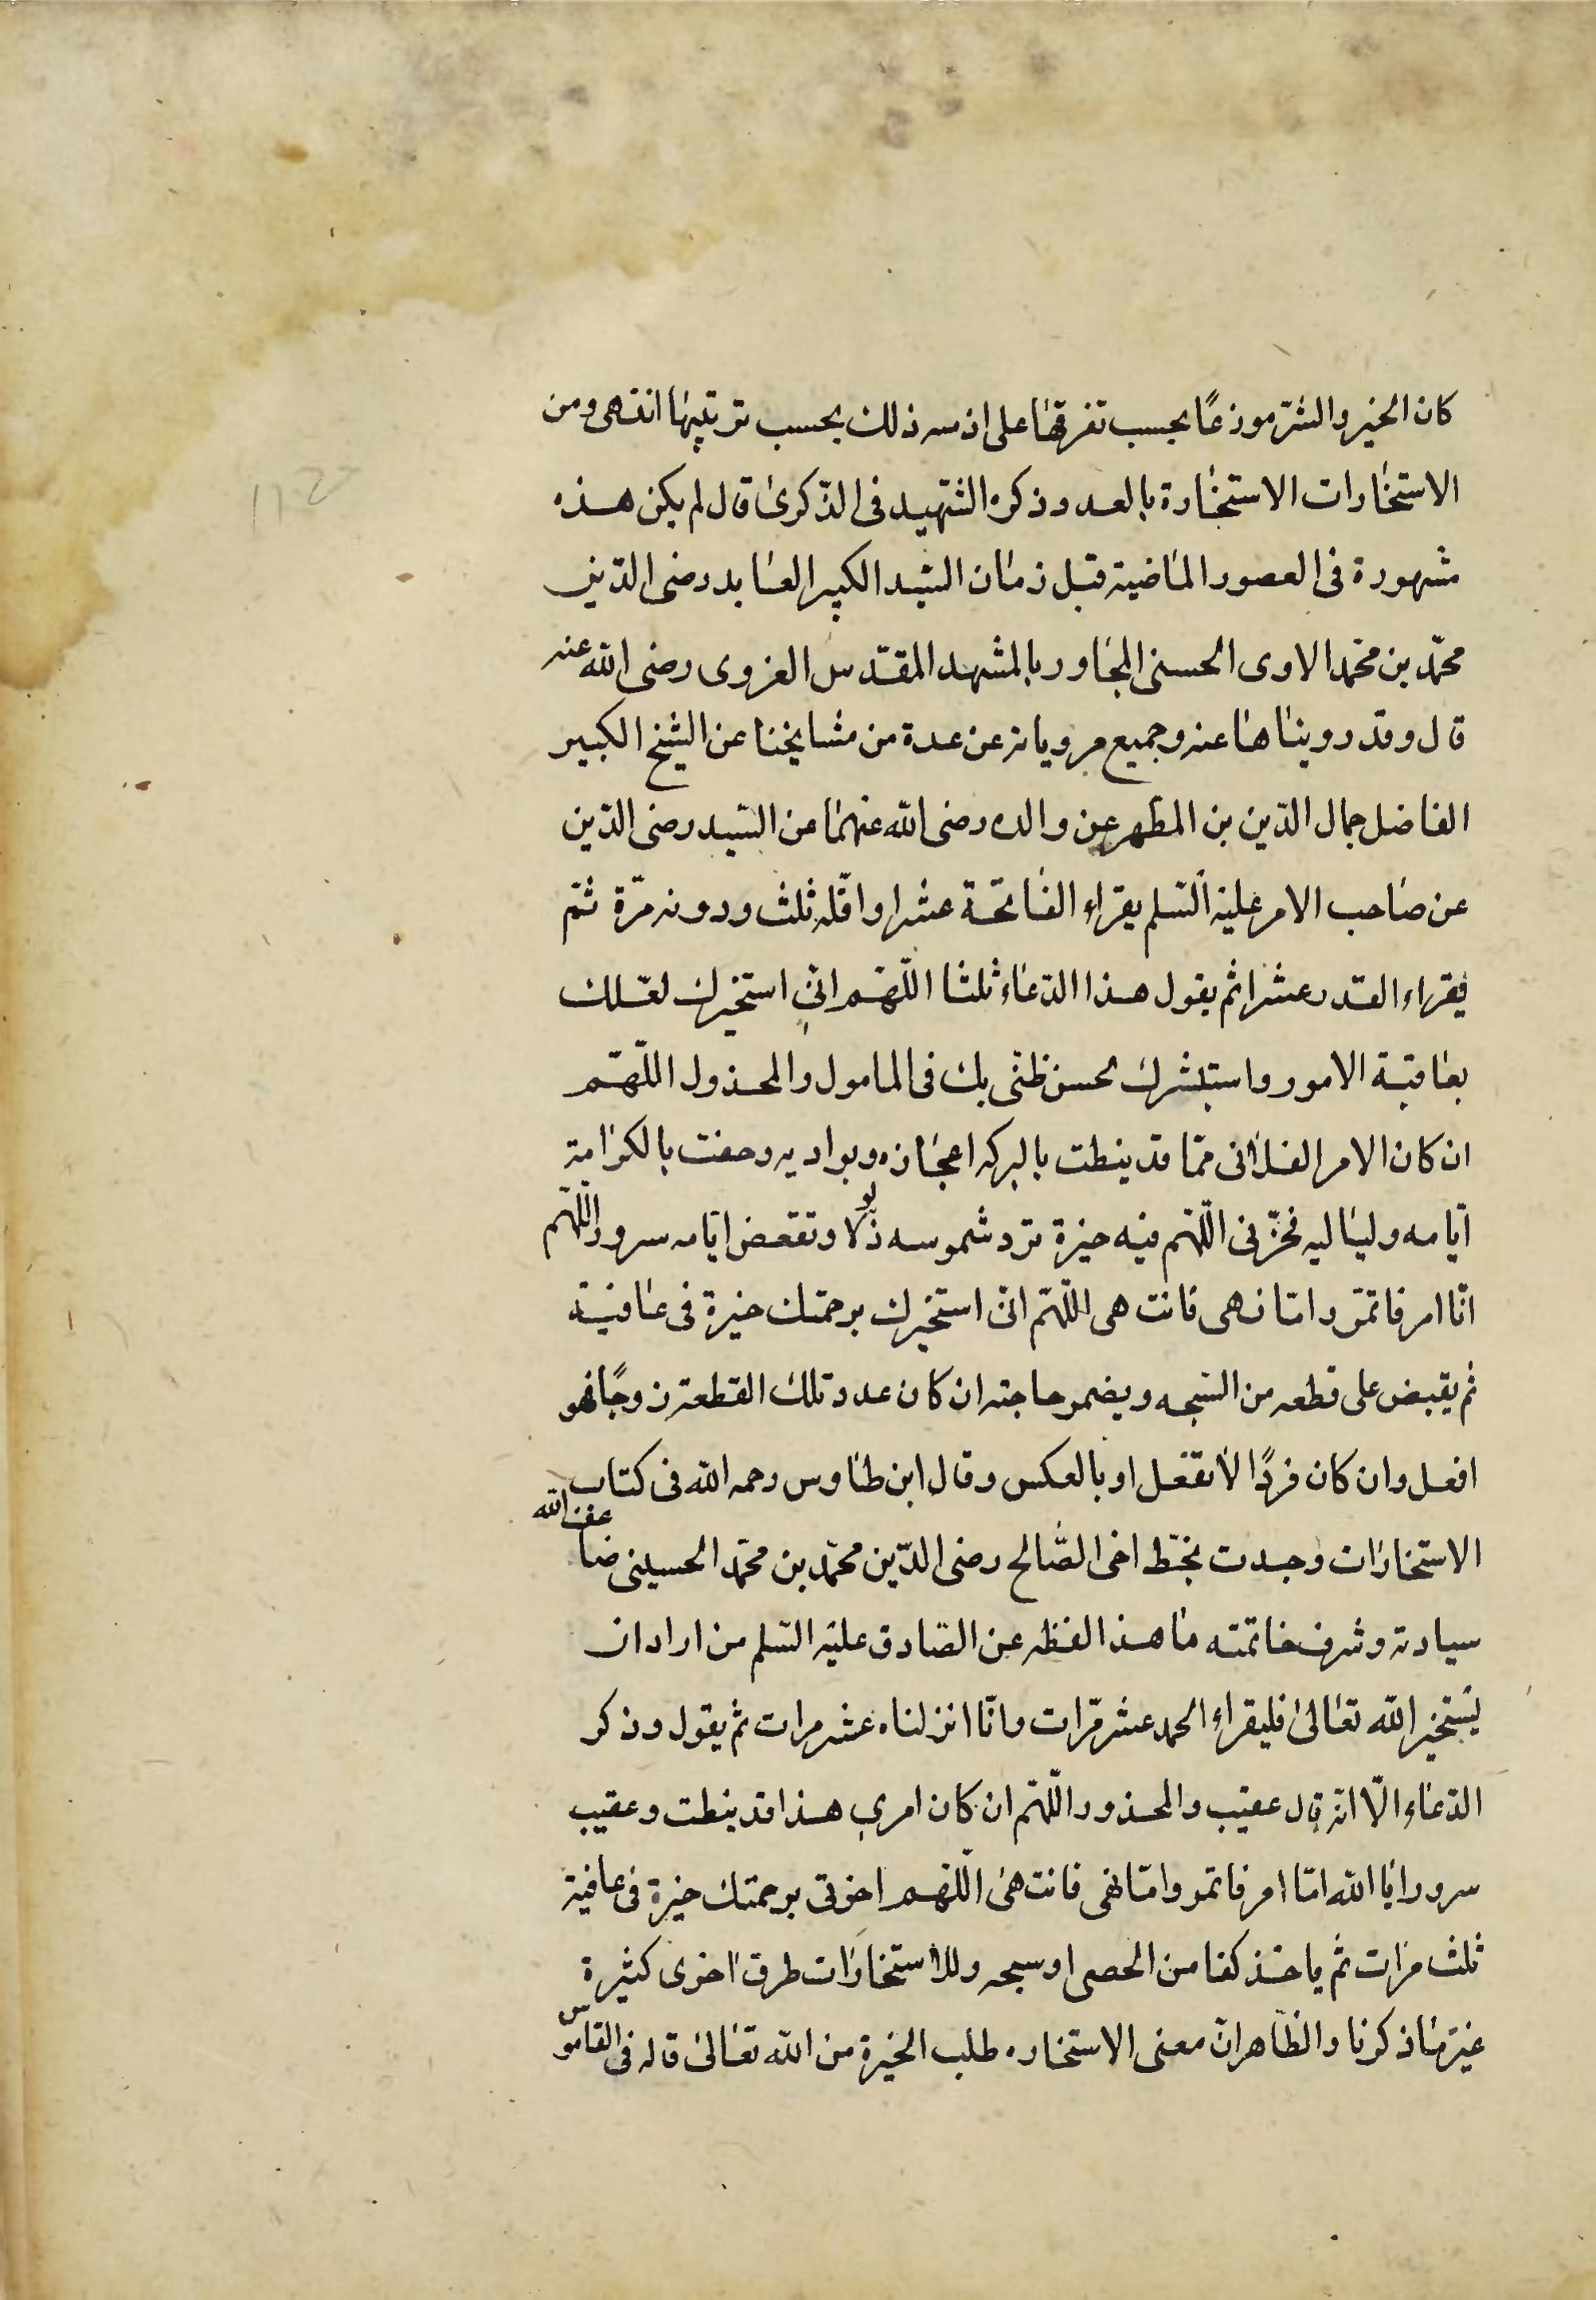 كان الخير والشر موذعًا بحسب تفرقها على ازمنه ذلك بحسب ترتيبها انتهى ومن
الاستخارات الاستخارة بالعدد وذكره الشهيد فى الذكرى قال لم يكن هذه
مشهورة فى العصور الماضية قبل زمان السيد الكبير العابد رضى الدين
محمّد بن محمّد الاوى الحسنى المجاور بالمشهد المقدّس الغروى رضى الله عنه
قال وقد رويناها عنه وجميع مروياته عن عدة من مشايخنا عن الشيخ الكبير
الفاضل جمال الدّين بن المطهر عن والده رضى الله عنهما عن السّيد رضى الدّين
عن صاحب الامر عليه السّلم يقراء الفاتحة عشرا واقلّه ثلث ودونه مرّة ثمّ
يقراء القدر عشرا ثم يقول هذا الدعاء ثلثا اللّهمّ انّى استخيرك لعلمك
بعاقبة الامور واستشيرك لحسن ظنّى بك فى المامول والمحذول اللّهمّ
ان كان الامر الفلانى ممّا قد ينطت بالبركه اعجازه وبواديه وحفت بالكرامة
ايّامه ولياليه فخرّ لى اللّهمّ فيه خيرة ترد شموسه ذلولا وتقعض ايّامه سرورا اللّهم
امّا امر فاتمر وامّا نهى فانتهى اللّهمّ انّى استخيرك برحمتك خيرة فى عافية
ثم يقبض على قطعه من السّبحه ويضمر حاجته ان كان عدد تلك القطعة زوجًا فهو
افعل وان كان فردًا لا تفعل او بالعكس وقال ابن طاوس رحمه الله فى كتاب
الاستخارات وجدت بخطّ اخى الصّالح رضى الدّين محمّد بن محمّد الحسينى ضاعف الله
سيادته وشرف خاتمته ما هذا لفظه عن الصّادق عليه السّلم من اراد ان
يستخير الله تعالى فليقراء الحمد عشر مرّات وانّا انزلناه عشر مرات ثم يقول وذكر
الدعاء الّا انّه قال عقيب والمحذور اللّهمّ ان كان امرى هذا قد ينطت وعقيب
سرورا يا الله امّا امر فاتمر وامّا نهى فانتهى اللّهمّ اخر لى برحمتك خيرة فى عافية
ثلث مرات ثم ياخذ كفا من الحصى او سبحه وللاستخارات طرق اخرى كثيرة
غير ما ذكرنا والظّاهر انّ معنى الاستخاره طلب الخيرة من الله تعالى قاله فى القاموس